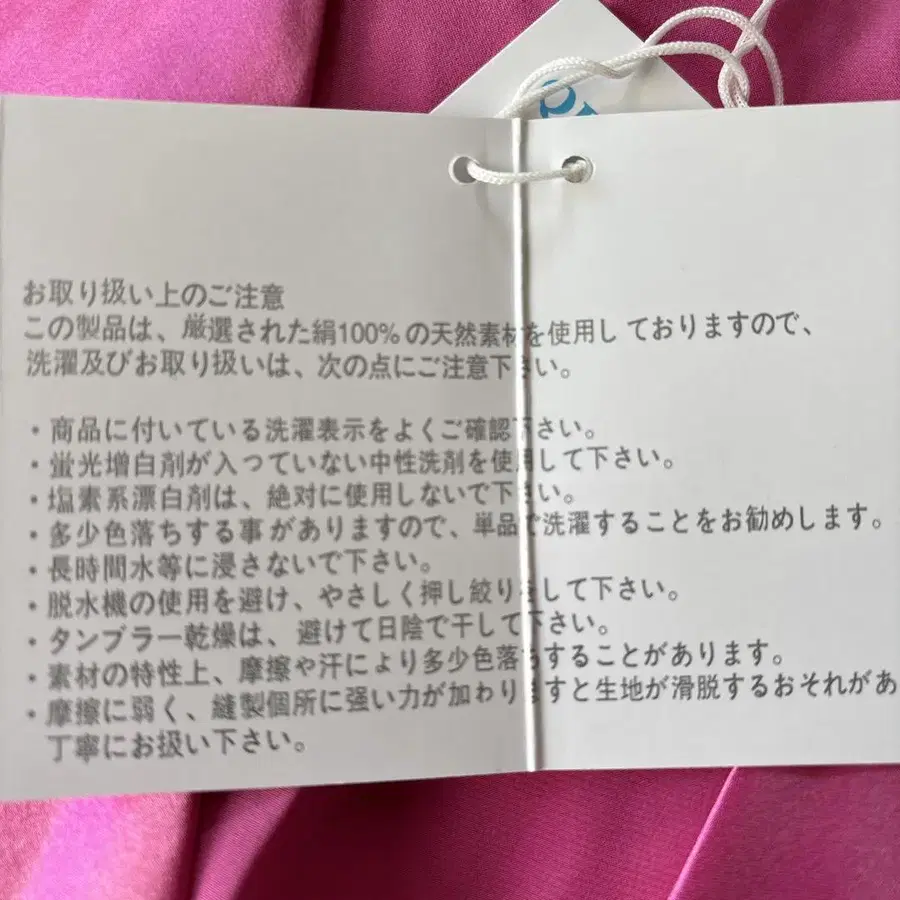 お取り扱い上のご注意
この製品は、厳選された絹100%の天然素材を使用しておりますので、
洗濯及びお取り扱いは、次の点にご注意下さい。
・商品に付いている洗濯表示をよくご確認下さい。
・蛍光増白剤が入っていない中性洗剤を使用して下さい。
・塩素系漂白剤は、絶対に使用しないで下さい。
・多少色落ちする事がありますので、単品で洗濯することをお勧めします。
・長時間水等に浸さないで下さい。
・脱水機の使用を避け、やさしく押し絞りをして下さい。
・タンブラー乾燥は、避けて日陰で干して下さい。
・素材の特性上、摩擦や汗により多少色落ちすることがあります。
・摩擦に弱く、縫製個所に強い力が加わりますと生地が滑脱するおそれがあ
丁寧にお扱い下さい。